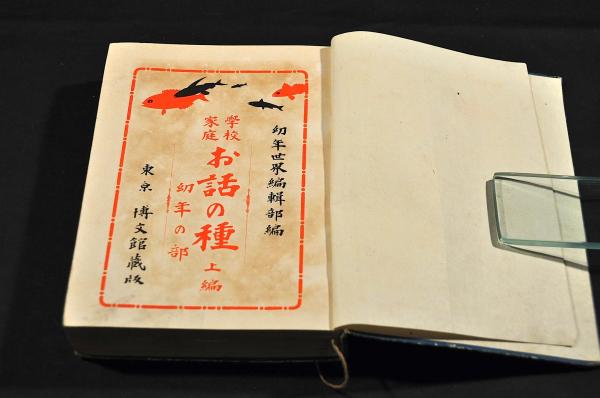 幼年世界編輯部編
學校
家庭
お話の種 上編
幼年の部
東京 博文館蔵版